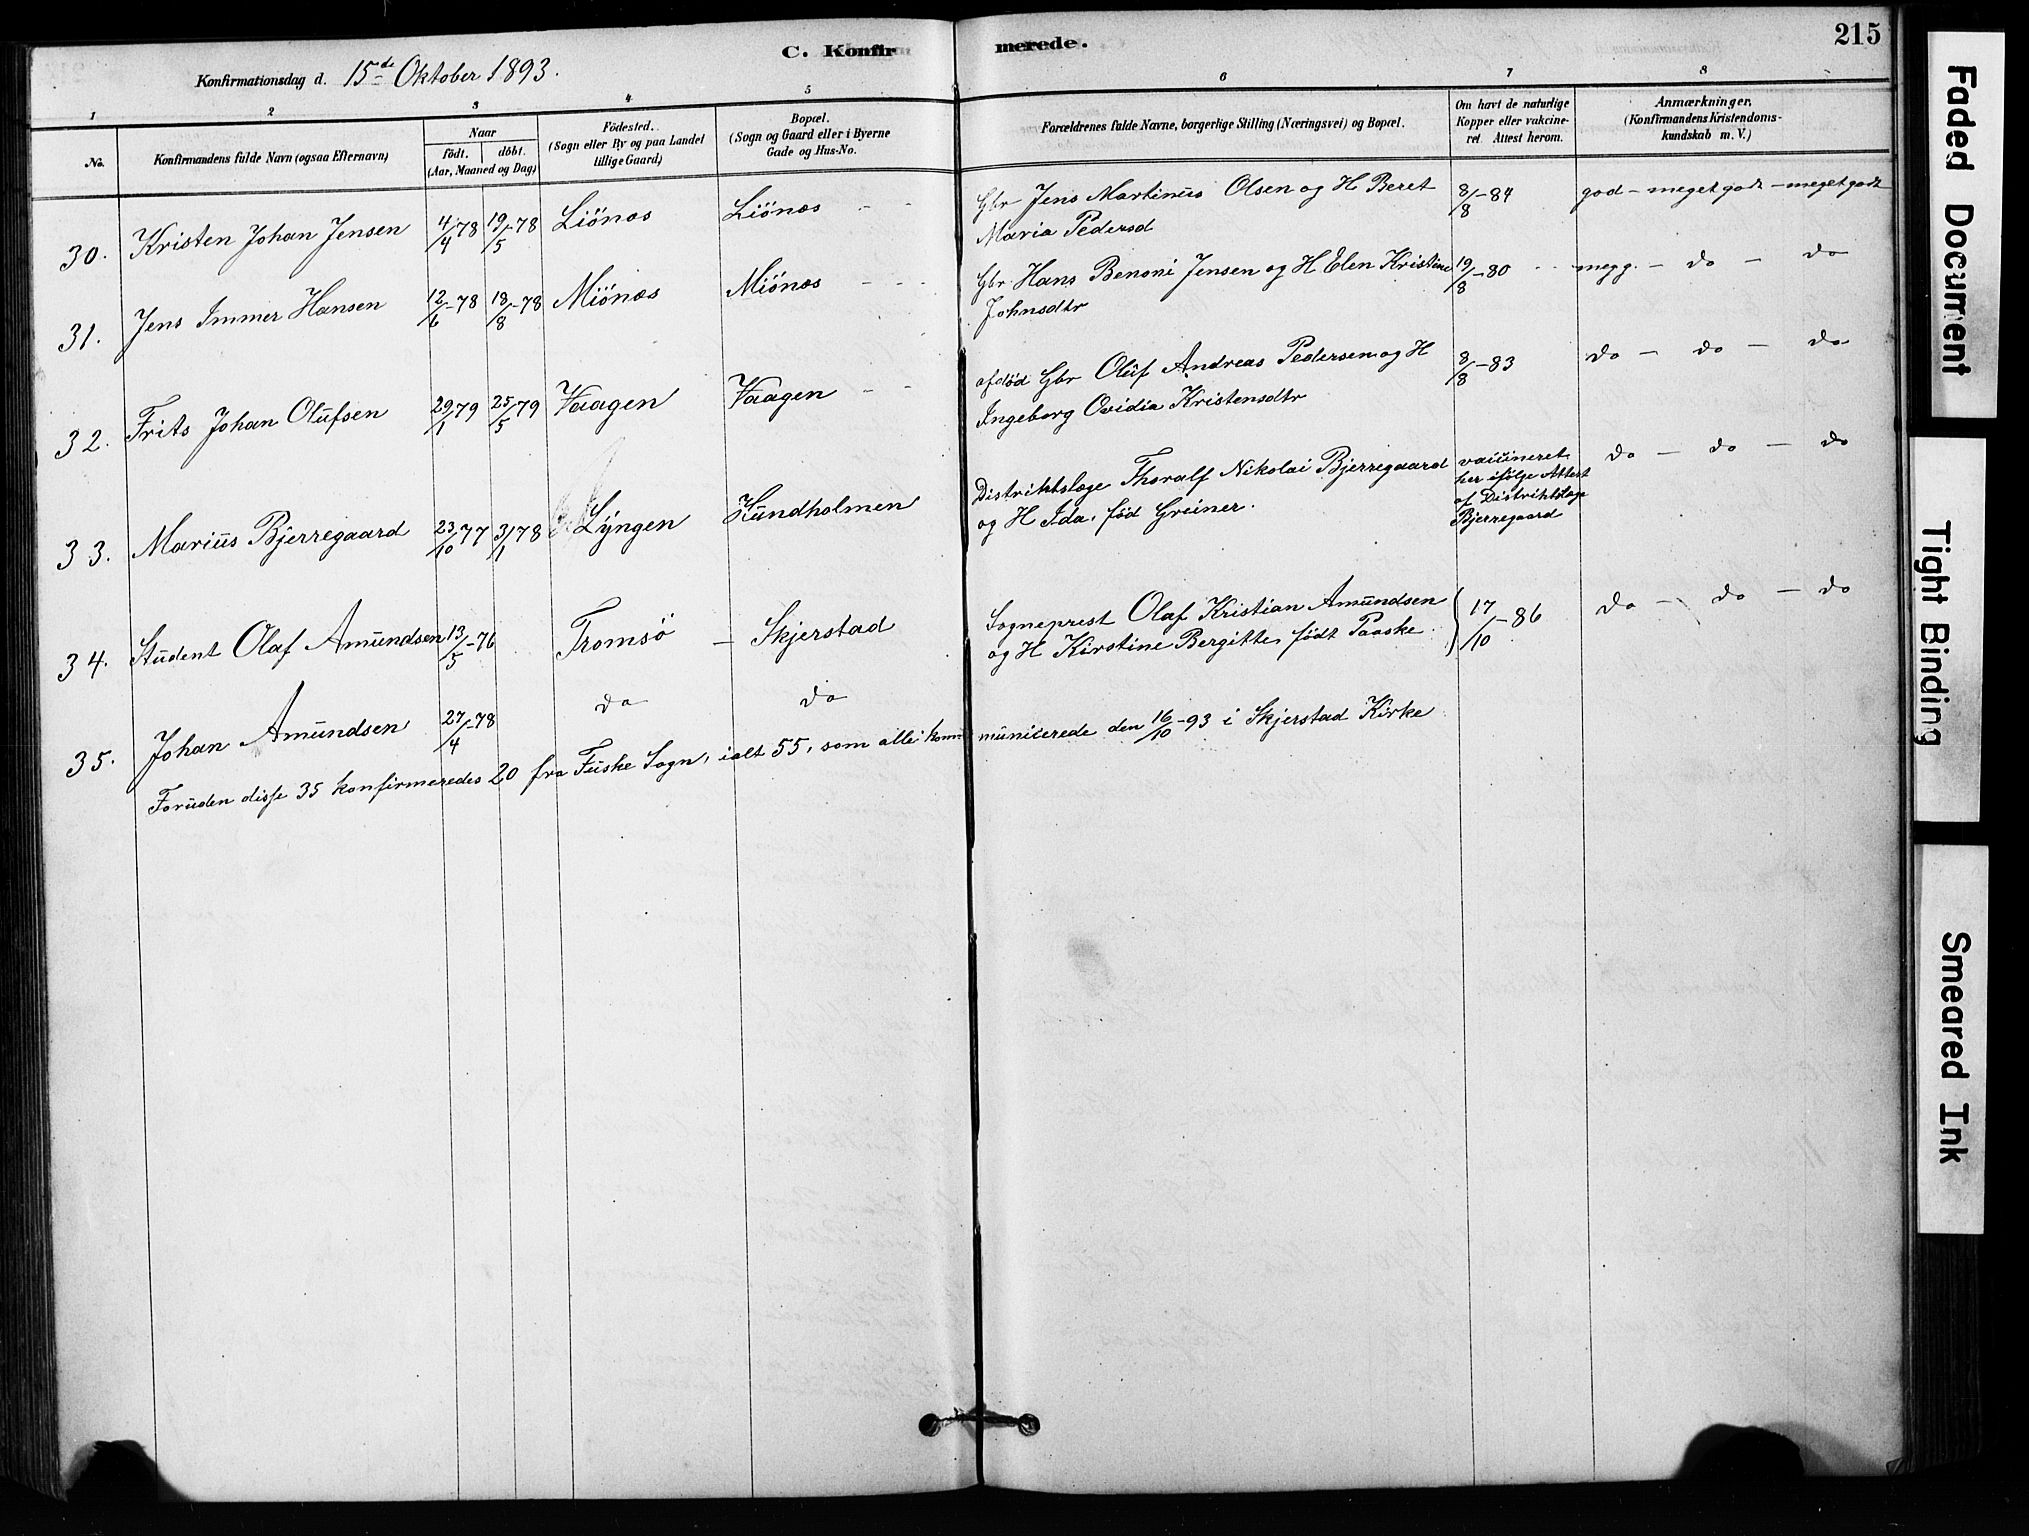 C. Konfirmerede.
215
Konfirmationsdag d. 15de Oktober 1893.
1 2 3 4 5 6 7 8
No.
Konfirmandens fulde Navn (ogsaa Efternavn)
Naar
født. døbt.
(Aar, Maaned og Dag)
Födested.
(Sogn eller By og paa Landet
tillige Gaard)
Bopæl.
(Sogn og Gaard eller i Byerne
Gade og Hus-No.
Forældrenes fulde Navne, borgerlige Stilling (Næringsvei) og Bopæl.
Om havt de naturlige
Kopper eller vakcine-
ret. Attest herom.
Anmærkninger.
(Konfirmandens Kristendoms-
kundskab m. V.)
30. Kristen Johan Jensen 4/4-78 19/5-78 Liönæs Liönæs - - Gbr Jens Martinus Olsen og H Beret 8/8-84 god - meget godt - meget godt
Maria Pedersd
31. Jens Immer Hansen 12/6-78 18/8-78 Miönæs Miönæs - - - Gbr Hans Benoni Jensen og H Elen Kristine 19/8-80 meg g. - do - do
Johnsdtr
32. Frits Johan Olufsen 29/1 79 25/5 79 Vaagen Vaagen - - afdød Gbr Oluf Andreas Pedersen og H 8/8-83 do - do - do
Ingeborg Ovidia Kristensdtr
33. Marius Bjerregaard 23/10 77 3/1 78 Lyngen Hundholmen Distriktslæge Thoralf Nikolai Bjerregaard do - do - do
og H Ida, fød Greiner.
vaccineret
her ifølge Attest
af Distriktslæge
Bjerregaard
34. Student Olaf Amundsen 13/5-76 Tromsø - Skjerstad Sogneprest Olaf Kristian Amundsen 17/10-86 do - do - do
og H Kirstine Bergitte, født Paaske
35. Johan Amundsen 27/4-78 do do
Foruden disse 35 konfirmeredes 20 fra Fuske Sogn, ialt 55, som alle kommunicerede den 16/10-93 i Skjerstad Kirke
Faded Document
Tight Binding
Smeared Ink